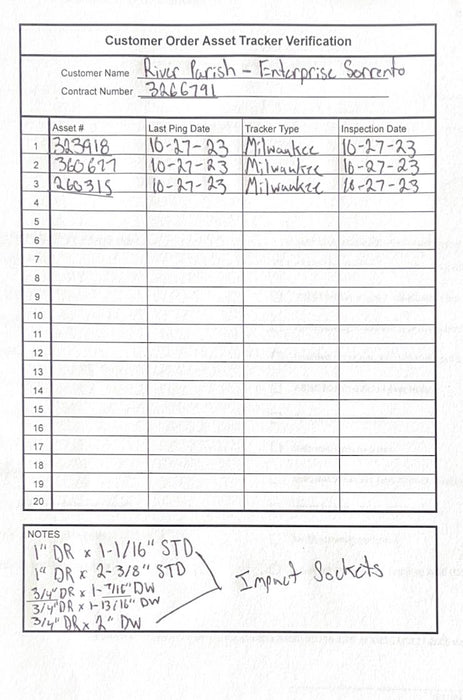 Customer Order Asset Tracker Verification
Customer Name River Parish - Enterprise Sorrento
Contract Number 3266791
Asset # Last Ping Date Tracker Type Inspection Date
1 323918 10-27-23 Milwaukee 10-27-23
2 360677 10-27-23 Milwaukee 10-27-23
3 260315 10-27-23 Milwaukee 10-27-23
4
5
6
7
8
9
10
11
12
13
14
15
16
17
18
19
20
NOTES
1" DR x 1-1/16" STD
1" DR x 2-3/8" STD
3/4" DR x 1-7/16" DW
3/4" DR x 1-13/16" DW
3/4" DR x 2" DW
Impact Sockets